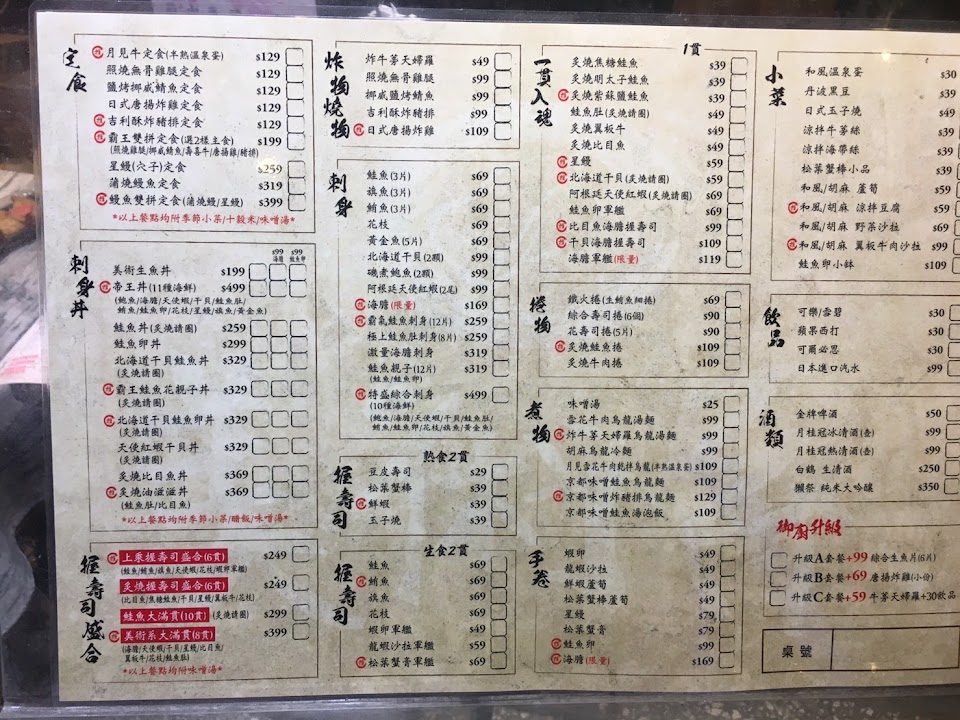 定食
月見牛定食(半熟溫泉蛋) $129
照燒無骨雞腿定食 $129
鹽烤挪威鯖魚定食 $129
日式唐揚炸雞定食 $129
吉利酥炸豬排定食 $129
霸王雙拼定食(選2樣主食) $199
(照燒雞腿/挪威鯖魚/壽喜牛/唐揚雞/豬排)
星鰻(穴子)定食 $259
蒲燒鰻魚定食 $319
鰻魚雙拼定食(蒲燒鰻/星鰻) $399
*以上餐點均附季節小菜/十穀米/味噌湯*
刺身丼
$99 海膽 $99 鮭魚卵
美術生魚丼 $199
帝王丼(11種海鮮) $499
(鮑魚/海膽/天使蝦/干貝/鮭魚肚/
鮪魚/鮭魚卵/花枝/星鰻/旗魚/黃金魚)
鮭魚丼(炙燒請圈) $259
鮭魚卵丼 $299
北海道干貝鮭魚丼 $329
(炙燒請圈)
霸王鮭魚花親子丼 $329
(炙燒請圈)
北海道干貝鮭魚卵丼 $329
(炙燒請圈)
天使紅蝦干貝丼 $329
(炙燒請圈)
炙燒比目魚丼 $369
炙燒油滋滋丼 $369
(鮭魚肚/比目魚)
*以上餐點均附季節小菜/醋飯/味噌湯*
握壽司盛合
上乘握壽司盛合(6貫) $249
(鮭魚/鮪魚/旗魚/天使蝦/花枝/蝦卵軍艦)
炙燒握壽司盛合(6貫) $249
(比目魚/焦糖鮭魚/干貝/星鰻/翼板牛/花枝)
鮭魚大滿貫(10貫) (炙燒請圈) $299
美術系大滿貫(8貫) $399
(海膽/天使蝦/干貝/星鰻/比目魚/
翼板牛/花枝/鮭魚肚)
*以上餐點均附味噌湯*
炸物燒物
炸牛蒡天婦羅 $49
照燒無骨雞腿 $99
挪威鹽烤鯖魚 $99
吉利酥炸豬排 $99
日式唐揚炸雞 $109
刺身
鮭魚(3片) $69
旗魚(3片) $69
鮪魚(3片) $69
花枝 $69
黃金魚(5片) $69
北海道干貝(2顆) $99
磯煮鮑魚(2顆) $99
阿根廷天使紅蝦(2尾) $99
海膽(限量) $169
霸氣鮭魚刺身(12片) $259
極上鮭魚肚刺身(8片) $259
激量海膽刺身 $319
鮭魚親子(12片) $319
(鮭魚/鮭魚卵)
特盛綜合刺身 $499
(10種海鮮)
(鮑魚/海膽/天使蝦/干貝/鮭魚肚/
鮪魚/鮭魚卵/花枝/旗魚/黃金魚)
熟食2貫
握壽司
豆皮壽司 $29
松葉蟹棒 $39
鮮蝦 $39
玉子燒 $39
生食2貫
握壽司
鮭魚 $69
鮪魚 $69
旗魚 $69
花枝 $69
蝦卵軍艦 $49
龍蝦沙拉軍艦 $59
松葉蟹膏軍艦 $69
1貫
一貫入魂
炙燒焦糖鮭魚 $39
炙燒明太子鮭魚 $39
炙燒紫蘇鹽鮭魚 $39
鮭魚肚(炙燒請圈) $49
炙燒翼板牛 $49
炙燒比目魚 $49
星鰻 $59
北海道干貝(炙燒請圈) $59
阿根廷天使紅蝦(炙燒請圈) $69
鮭魚卵軍艦 $69
比目魚海膽握壽司 $99
干貝海膽握壽司 $109
海膽軍艦(限量) $119
捲物
鐵火捲(生鮪魚細捲) $69
綜合壽司捲(6個) $90
花壽司捲(5片) $90
炙燒鮭魚捲 $109
炙燒牛肉捲 $109
煮物
味噌湯 $25
雪花牛肉烏龍湯麵 $99
炸牛蒡天婦羅烏龍湯麵 $99
胡麻烏龍冷麵 $99
月見雪花牛肉乾拌烏龍(半熟溫泉蛋) $109
京都味噌鮭魚烏龍麵 $109
京都味噌炸豬排烏龍麵 $129
京都味噌鮭魚湯泡飯 $109
手卷
蝦卵 $49
龍蝦沙拉 $49
鮮蝦蘆筍 $49
松葉蟹棒蘆筍 $49
星鰻 $79
松葉蟹膏 $79
鮭魚卵 $79
海膽(限量) $169
小菜
和風溫泉蛋 $30
丹波黑豆 $39
日式玉子燒 $49
涼拌牛蒡絲 $39
涼拌海帶絲 $39
松葉蟹棒小品 $39
和風/胡麻 蘆筍 $59
和風/胡麻 涼拌豆腐 $59
和風/胡麻 野菜沙拉 $69
和風/胡麻 翼板牛肉沙拉 $99
鮭魚卵小缽 $109
飲品
可樂/雪碧 $30
蘋果西打 $30
可爾必思 $30
日本進口汽水 $99
酒類
金牌啤酒 $50
月桂冠冰清酒(壺) $99
月桂冠熱清酒(壺) $99
白鶴 生清酒 $250
獺祭 純米大吟釀 $350
御廚升級
升級A套餐+99 綜合生魚片(6片)
升級B套餐+69 唐揚炸雞(小份)
升級C套餐+59 牛蒡天婦羅+30飲品
桌號